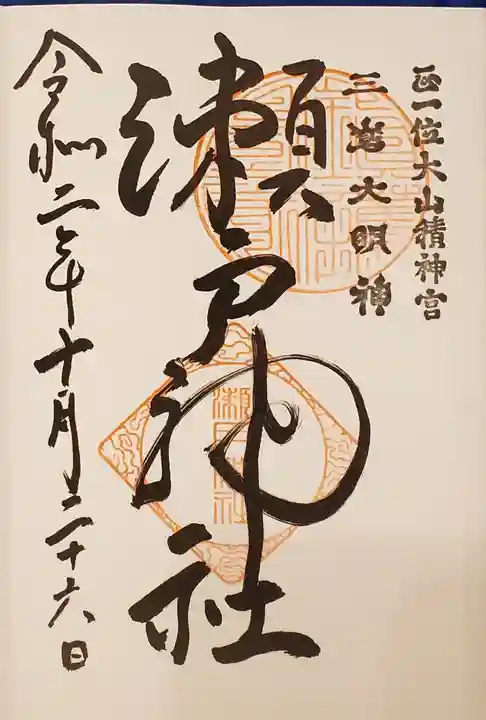 正一位大山積神宮
三島大明神
瀬戸神社
令和二年十月二十六日
瀬戸神社